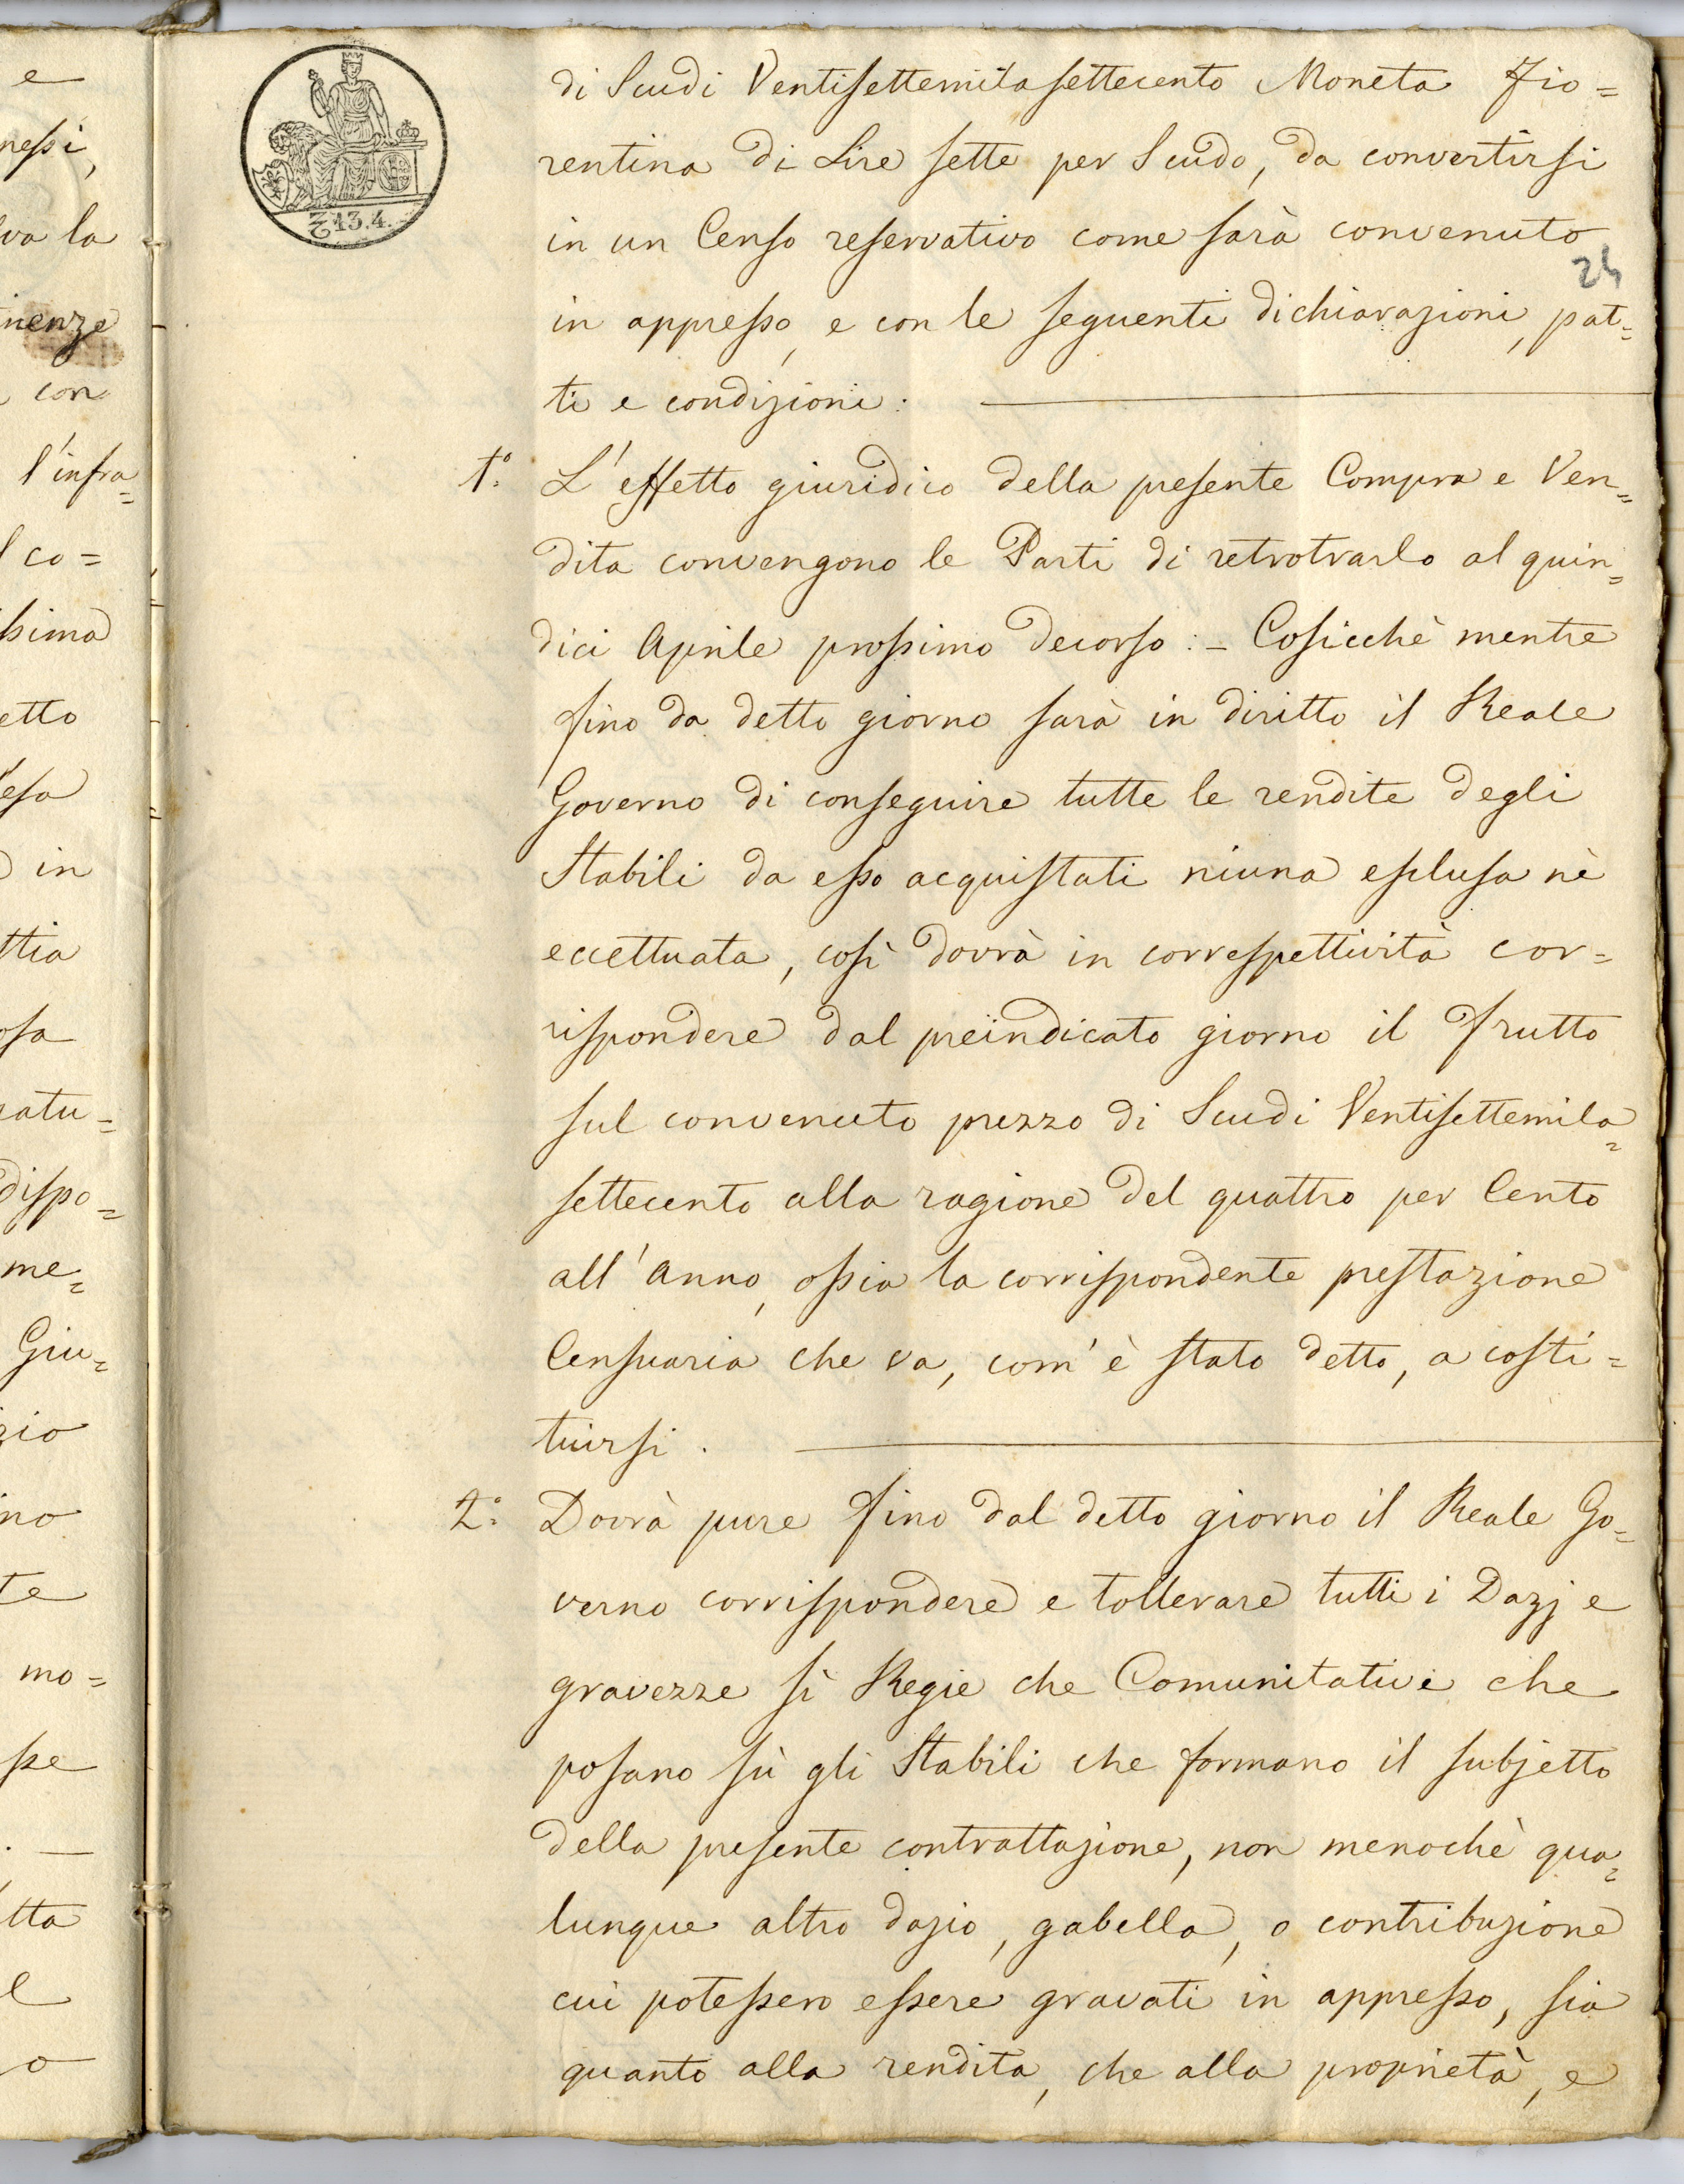 e
nessi,
va la
nenze
con
l'infra=
l co=
ssima
etto
esa
in
ttia
osa
ratu=
dispo=
me=
Giu=
zio
no
te
mo=
sse
tta
l
o
₤ 13.4.
24
di Scudi Ventisettemilasettecento Moneta Fio=
rentina di Lire sette per Scudo, da convertirsi
in un Censo reservativo come sarà convenuto
in appresso, e con le seguenti dichiarazioni, pat=
ti e condizioni:
1.° L'effetto giuridico della presente Compra e Ven=
dita convengono le Parti di retrotrarlo al quin=
dici Aprile prossimo decorso: - Cosicchè mentre
fino da detto giorno sarà in diritto il Reale
Governo di conseguire tutte le rendite degli
Stabili da esso acquistati niuna esclusa nè
eccettuata, così dovrà in correspettività cor=
rispondere dal preindicato giorno il frutto
sul convenuto prezzo di Scudi Ventisettemila=
settecento alla ragione del quattro per Cento
all'Anno, ossia la corrispondente prestazione
Censuaria che va, com'è stato detto, a costi=
tuirsi.
2.° Dovrà pure fino dal detto giorno il Reale Go=
verno corrispondere e tollerare tutti i Dazj e
gravezze sì Regie che Comunitative che
posano sù gli Stabili che formano il subjetto
della presente contrattazione, non menochè qua=
lunque altro dazio, gabella, o contribuzione
cui potessero essere gravati in appresso, sia
quanto alla rendita, che alla proprietà, e